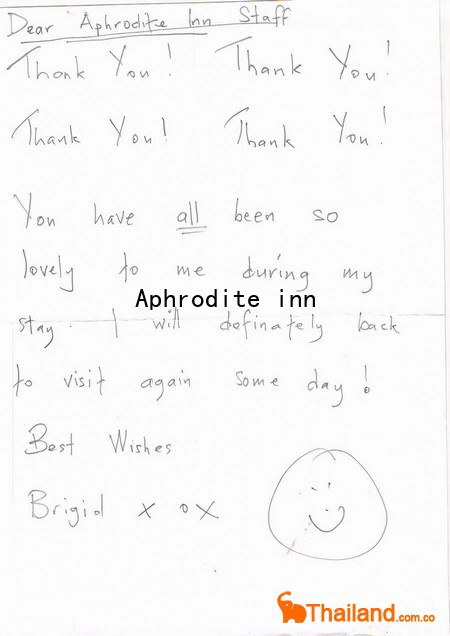 Dear Aphrodite Inn Staff
Thank You! Thank You!
Thank You! Thank You!
You have all been so
lovely to me during my
Aphrodite inn
stay. I will definately back
to visit again some day!
Best Wishes
Brigid x o x
Thailand.com.co